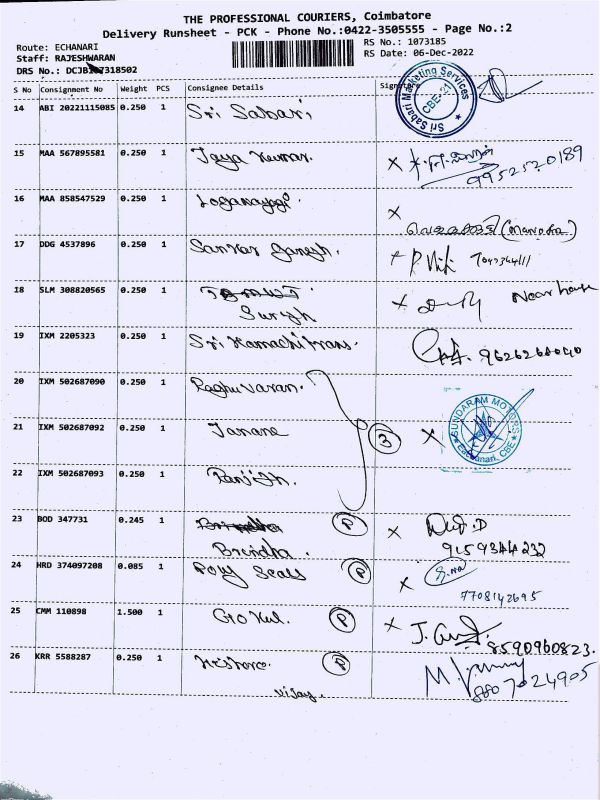 THE PROFESSIONAL COURIERS, Coimbatore
Delivery Runsheet - PCK - Phone No.:0422-3505555 - Page No.:2
Route: ECHANARI
RS No.: 1073185
Staff: RAJESHWARAN
RS Date: 06-Dec-2022
DRS No.: DCJB107318502
S No Consignment No Weight PCS Consignee Details Signature
14 ABI 20221115085 0.250 1 Sri Sabari
Sri Sabari Marketing Services CBE-21
15 MAA 567895581 0.250 1 Jaya Kumar. X
9952520189
16 MAA 858547529 0.250 1 Loganayagi. X
(Manodia)
17 DDG 4537896 0.250 1 Sankar Ganesh.
18 SLM 308820565 0.250 1 X Near house
19 IXM 2205323 0.250 1 Sri Kamachi trans. 9626268040
20 IXM 502687090 0.250 1 Raghuvaran.
21 IXM 502687092 0.250 1 Janane 3 X
SUNDARAM MOTORS
Eachanari, CBE
22 IXM 502687093 0.250 1 Ranjith.
23 BOD 347731 0.245 1 Brindha P X
Brindha. 9159344232
24 HRD 374097208 0.085 1 Pony Seals P X
7708142695
25 CMM 110898 1.500 1 Gokul. P X J.
8590960823.
26 KRR 5588287 0.250 1 Kishore. P
Vijay. 8807024905